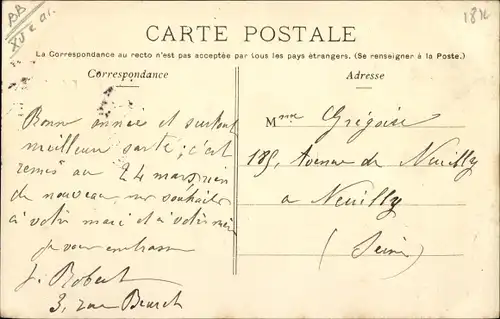 BB
XV e ar.
1816
CARTE POSTALE
La Correspondance au recto n'est pas acceptée par tous les pays étrangers. (Se renseigner à la Poste.)
Correspondance
Adresse
Bonne année et surtout
meilleure santé ; c'est
remis au 24 mars, rien
de nouveau, souhaits
à votre mari et à votre
je vous embrasse
J. Robert
3, rue
Mme Grégoire
185, Avenue de Neuilly
a Neuilly
(Seine)